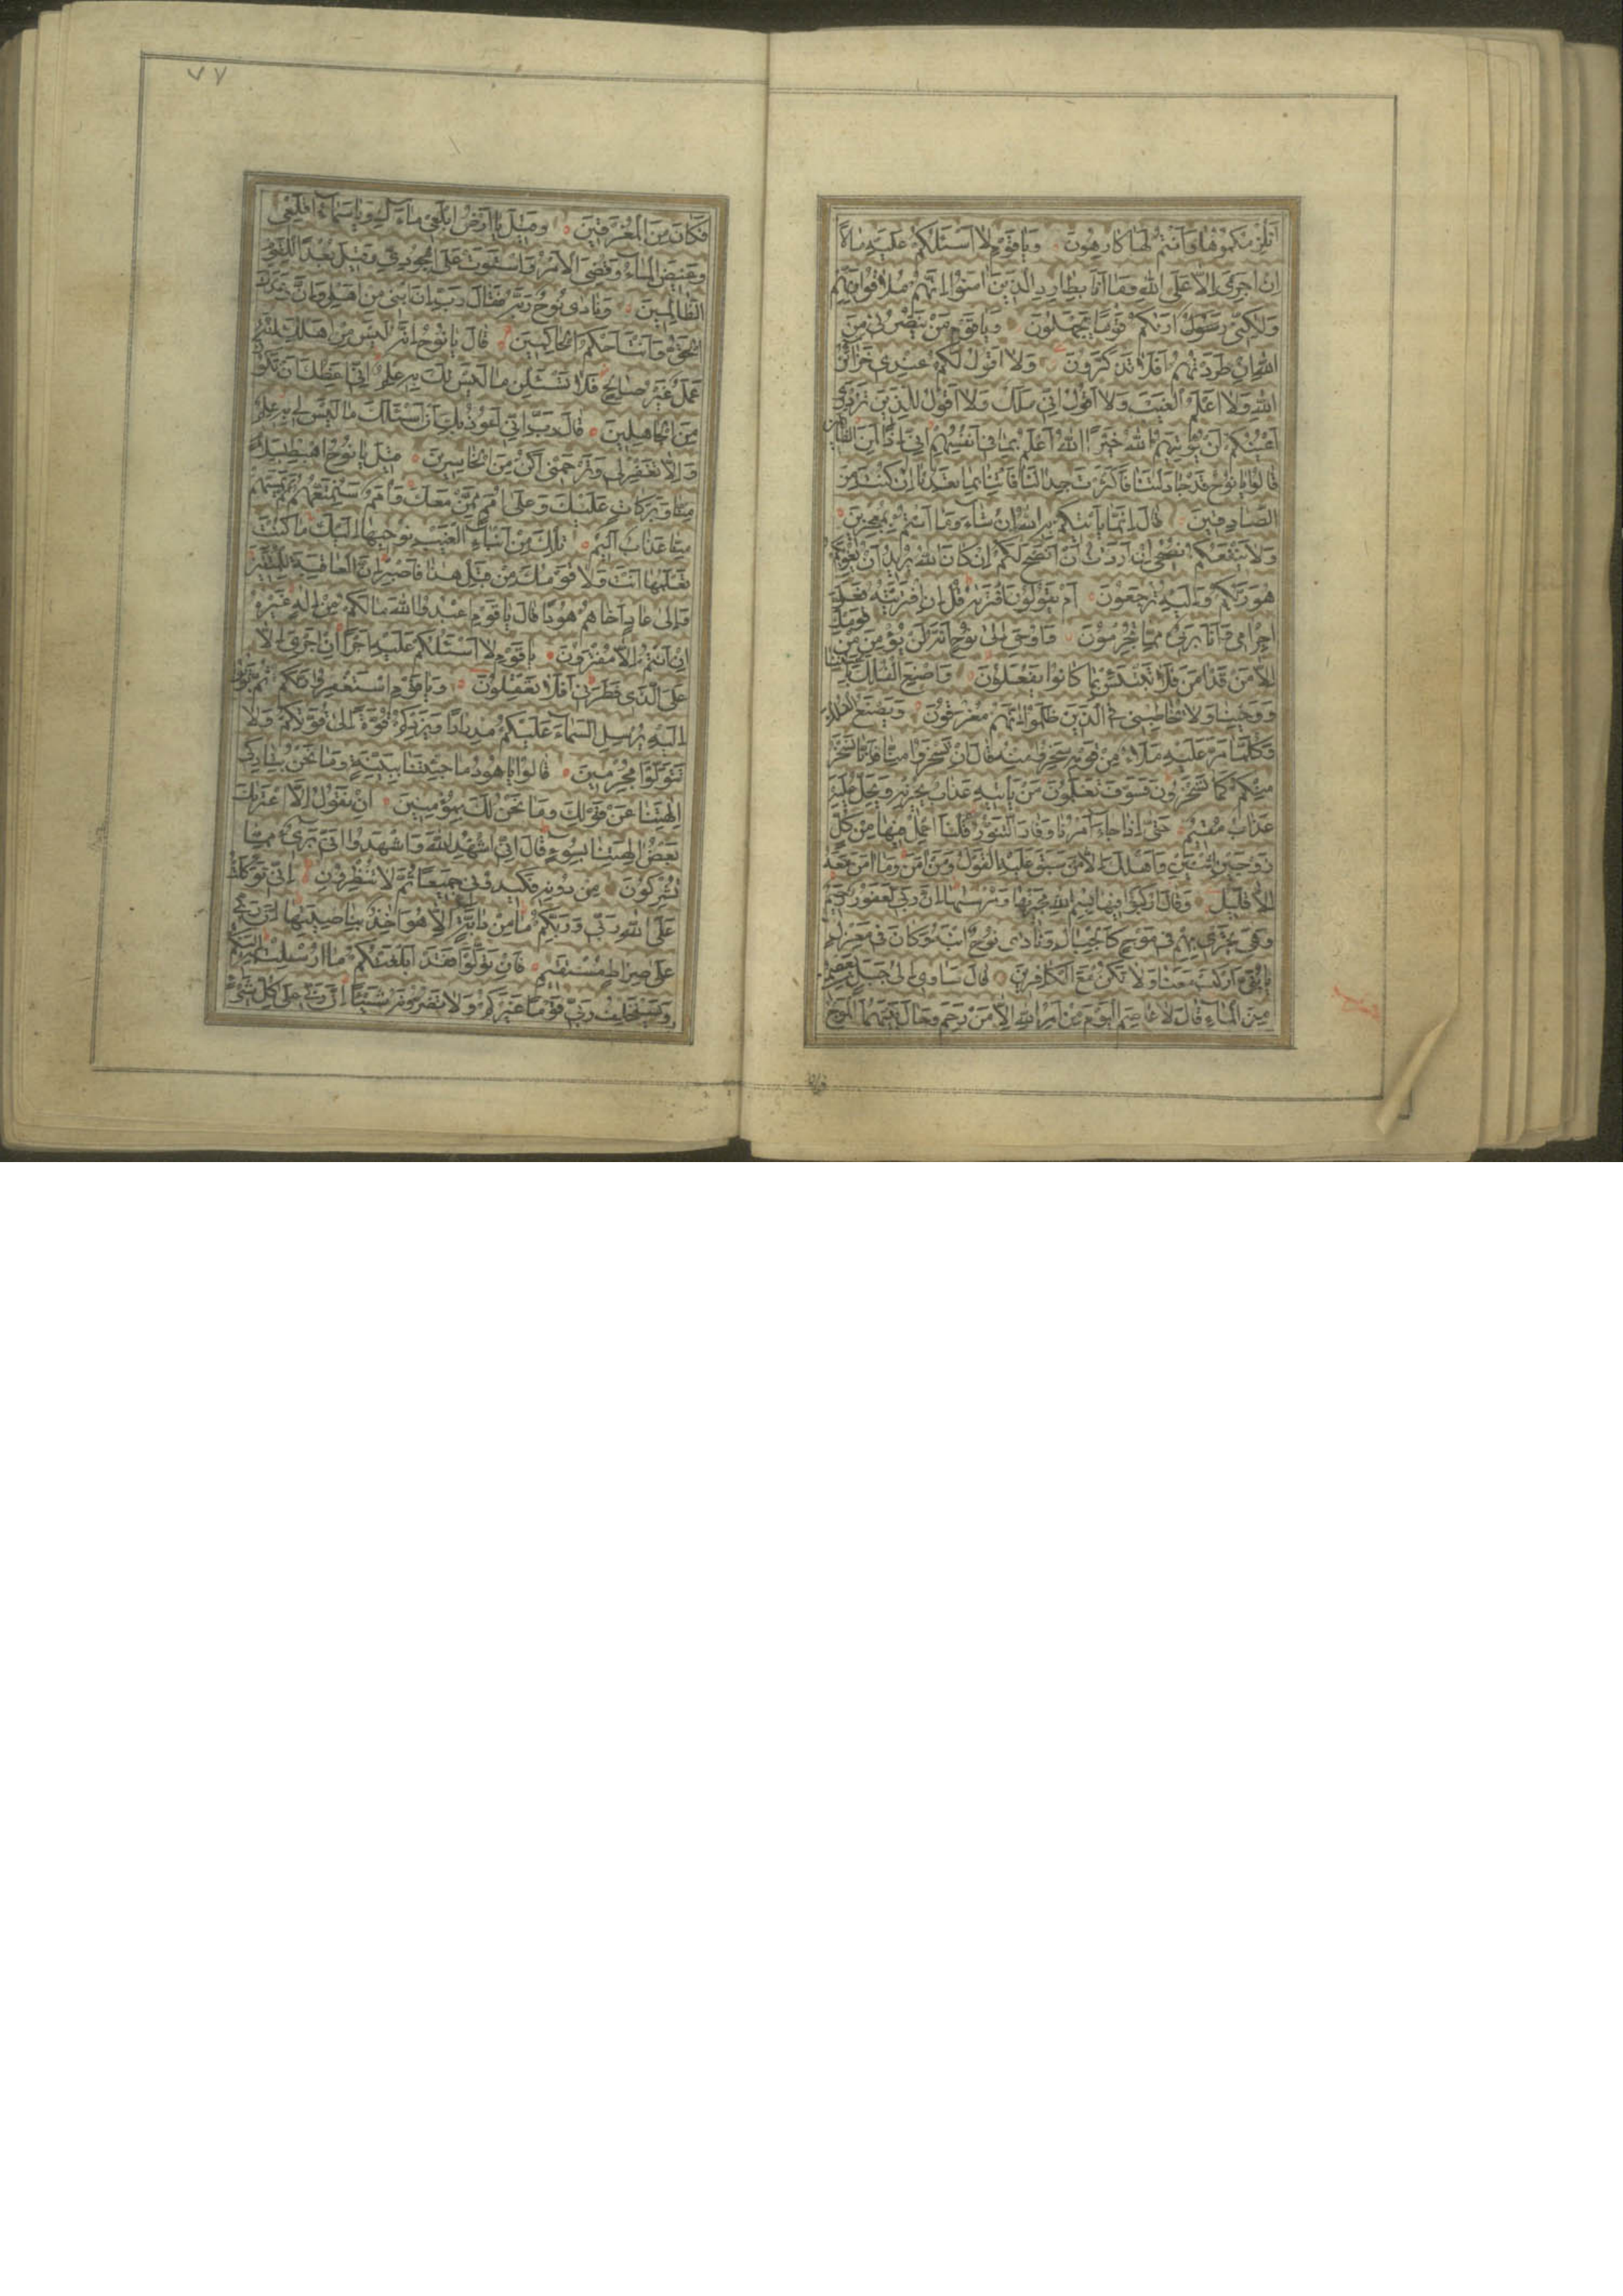 أنلزمكموها وأنتم لها كارهون ويا قوم لا أسئلكم عليه مالا
إن أجري إلا على الله وما أنا بطارد الذين آمنوا إنهم ملاقوا ربهم
ولكني أريكم قوما تجهلون ويا قوم من ينصرني من
الله إن طردتهم أفلا تذكرون ولا أقول لكم عندي خزائن
الله ولا أعلم الغيب ولا أقول إني ملك ولا أقول للذين تزدري
أعينكم لن يؤتيهم الله خيرا الله أعلم بما في أنفسهم إني إذا لمن الظالمين
قالوا يا نوح قد جادلتنا فأكثرت جدالنا فأتنا بما تعدنا إن كنت من
الصادقين قال إنما يأتيكم به الله إن شاء وما أنتم بمعجزين
ولا ينفعكم نصحي إن أردت أن أنصح لكم إن كان الله يريد أن يغويكم
هو ربكم وإليه ترجعون أم يقولون افتريه قل إن افتريته فعلي
إجرامي وأنا بريء مما تجرمون وأوحي إلى نوح أنه لن يؤمن من قومك
إلا من قد آمن فلا تبتئس بما كانوا يفعلون واصنع الفلك بأعيننا
ووحينا ولا تخاطبني في الذين ظلموا إنهم مغرقون ويصنع الفلك
وكلما مر عليه ملأ من قومه سخروا منه قال إن تسخروا منا فإنا نسخر
منكم كما تسخرون فسوف تعلمون من يأتيه عذاب يخزيه ويحل عليه
عذاب مقيم حتى إذا جاء أمرنا وفار التنور قلنا احمل فيها من كل
زوجين اثنين وأهلك إلا من سبق عليه القول ومن آمن وما آمن معه
إلا قليل وقال اركبوا فيها بسم الله مجريها ومرسيها إن ربي لغفور رحيم
وهي تجري بهم في موج كالجبال ونادى نوح ابنه وكان في معزل
يا بني اركب معنا ولا تكن مع الكافرين قال سآوي إلى جبل يعصمني
من الماء قال لا عاصم اليوم من أمر الله إلا من رحم وحال بينهما الموج
٧٧
فكان من المغرقين وقيل يا أرض ابلعي ماءك ويا سماء أقلعي
وغيض الماء وقضي الأمر واستوت على الجودي وقيل بعدا للقوم
الظالمين ونادى نوح ربه فقال رب إن ابني من أهلي وإن وعدك
الحق وأنت أحكم الحاكمين قال يا نوح إنه ليس من أهلك إنه
عمل غير صالح فلا تسئلن ما ليس لك به علم إني أعظك أن تكون
من الجاهلين قال رب إني أعوذ بك أن أسئلك ما ليس لي به علم
وإلا تغفر لي وترحمني أكن من الخاسرين قيل يا نوح اهبط بسلام
منا وبركات عليك وعلى أمم ممن معك وأمم سنمتعهم ثم يمسهم
منا عذاب أليم تلك من أنباء الغيب نوحيها إليك ما كنت
تعلمها أنت ولا قومك من قبل هذا فاصبر إن العاقبة للمتقين
وإلى عاد أخاهم هودا قال يا قوم اعبدوا الله ما لكم من إله غيره
إن أنتم إلا مفترون يا قوم لا أسئلكم عليه أجرا إن أجري إلا
على الذي فطرني أفلا تعقلون ويا قوم استغفروا ربكم ثم توبوا
إليه يرسل السماء عليكم مدرارا ويزدكم قوة إلى قوتكم ولا
تتولوا مجرمين قالوا يا هود ما جئتنا ببينة وما نحن بتاركي
آلهتنا عن قولك وما نحن لك بمؤمنين إن نقول إلا اعتريك
بعض آلهتنا بسوء قال إني أشهد الله واشهدوا أني بريء مما
تشركون من دونه فكيدوني جميعا ثم لا تنظرون إني توكلت
على الله ربي وربكم ما من دابة إلا هو آخذ بناصيتها إن ربي
على صراط مستقيم فإن تولوا فقد أبلغتكم ما أرسلت به إليكم
ويستخلف ربي قوما غيركم ولا تضرونه شيئا إن ربي على كل شيء